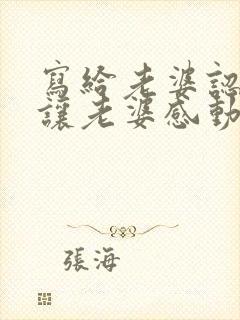 寫給老婆認
讓老婆感動
張海